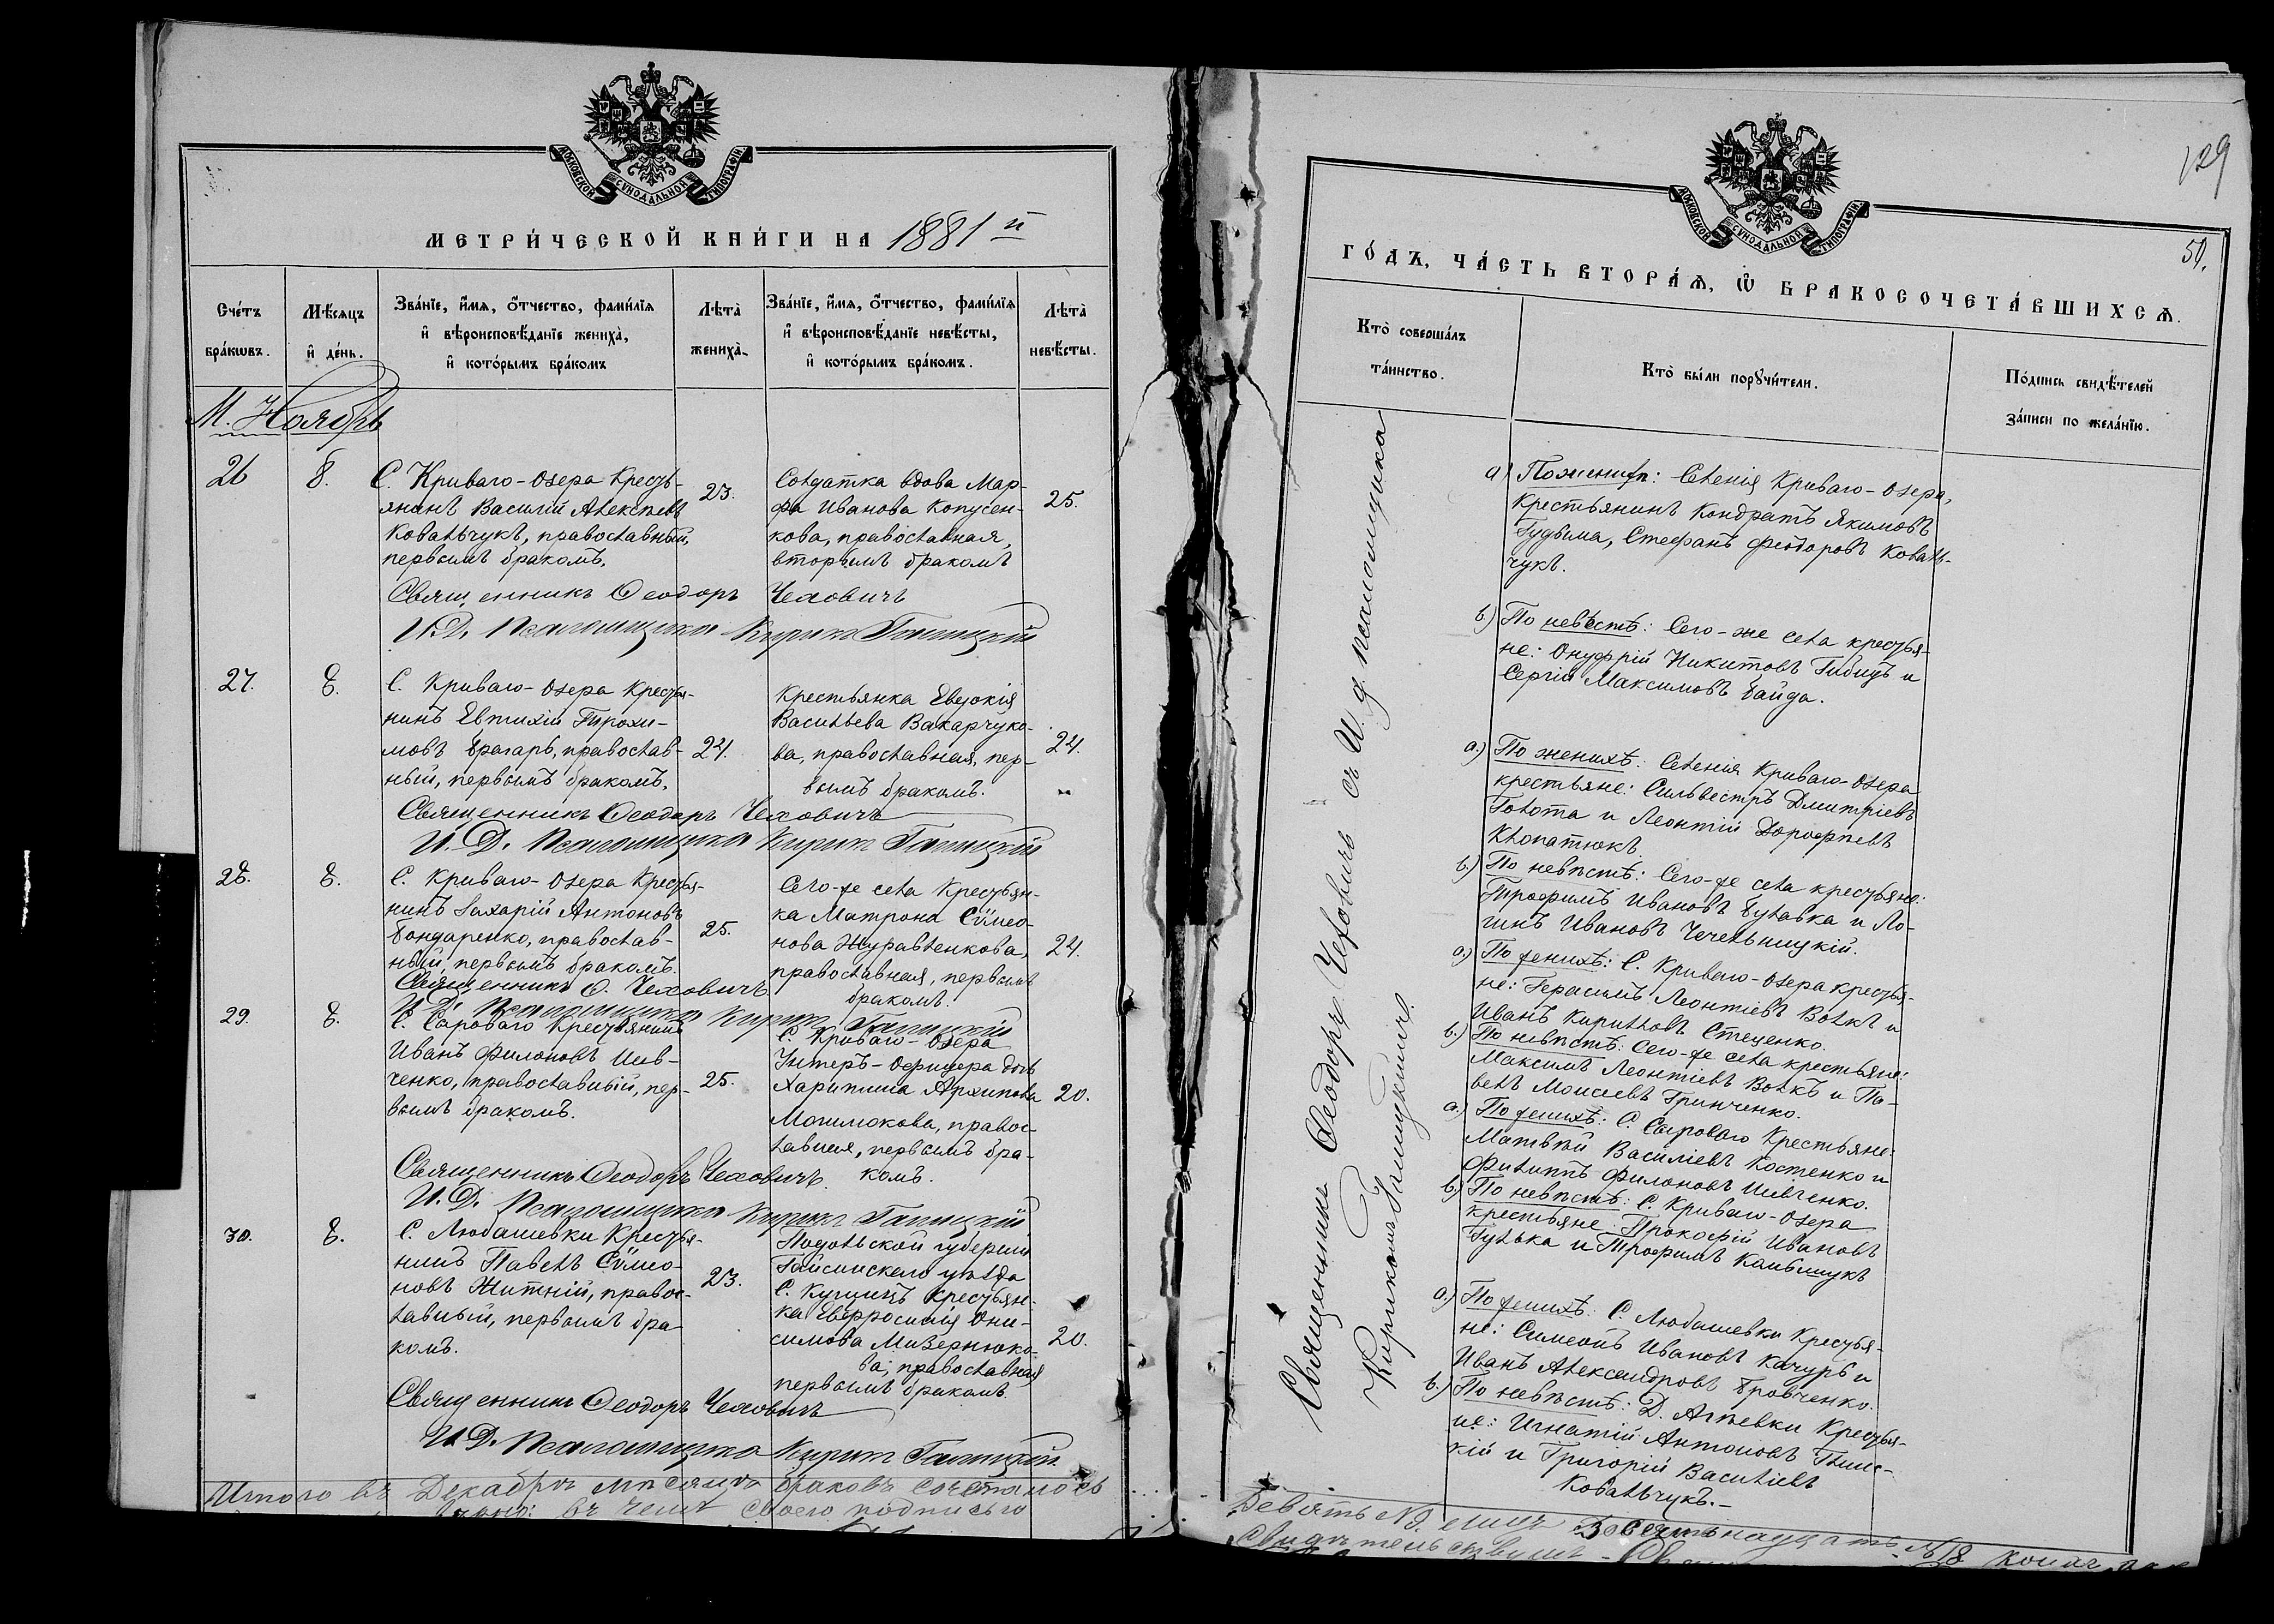 МОСКОВСКОЙ СѴНОДАЛЬНОЙ ТИПОГРАФІИ
МЕТРИ́ЧЕСКОЙ КНИ́ГИ НА 1881 й
Сче́тъ бра́кωвъ.
Мѣ́сяцъ и҆ де́нь.
Зва́нїе, и҆́мѧ, ѻ҆́тчество, фами́лїѧ
и҆ вѣроисповѣ́данїе жениха̀,
и҆ кото́рымъ бра́комъ
Лѣта̀ жениха̀.
Зва́нїе, и҆́мѧ, ѻ҆́тчество, фами́лїѧ
и҆ вѣроисповѣ́данїе невѣ́сты,
и҆ кото́рымъ бра́комъ.
Лѣта̀ невѣ́сты.
М. Ноябрь
26
8.
С. Криваго-Озера Кресть-
янинъ Василій Алексѣевъ
Ковальчукъ, православный,
первымъ бракомъ.
23.
Солдатка вдова Мар-
фа Иванова Копусен-
кова, православная,
вторымъ бракомъ
25.
Священникъ Ѳеодоръ Чеховичъ
И.Д. Псаломщика Кирикъ Галицкій
27.
8.
С. Криваго-Озера Крестья-
нинъ Евтихій Трохи-
мовъ Брагарь, православ-
ный, первымъ бракомъ.
24.
Крестьянка Евдокія
Васильева Вакарчуко-
ва, православная, пер-
вымъ бракомъ.
24.
Священникъ Ѳеодоръ Чеховичъ
И.Д. Псаломщика Кирикъ Галицкій
28.
8.
С. Криваго-Озера Крестья-
нинъ Захарій Антоновъ
Бондаренко, православ-
ный, первымъ бракомъ.
25.
Сего-же села Крестьян-
ка Матрона Сѵмео-
нова Журавленкова,
православная, первымъ
бракомъ.
24.
Священникъ Ѳ. Чеховичъ
И.Д. Псаломщика Кирикъ Галицкій
29.
8.
С. Сароваго Крестьянинъ
Иванъ Филоновъ Шев-
ченко, православный, пер-
вымъ бракомъ.
25.
С. Криваго-Озера
Унтеръ-Офицера дочь
Харитина Архипова
Могилюкова, правос-
лавная, первымъ бра-
комъ.
20.
Священникъ Ѳеодоръ Чеховичъ
И.Д. Псаломщика Кирикъ Галицкій
30.
8.
С. Любашевки Крестья-
нинъ Павелъ Сѵмео-
новъ Житній, правос-
лавный, первымъ бра
комъ.
23.
Подольской губерніи
Гайсинскаго уѣзда
С. Крестьян-
ка Евфросинія Они-
симова Мизернюко-
ва, православная
первымъ бракомъ.
20.
Священникъ Ѳеодоръ Чеховичъ
И.Д. Псаломщика Кирикъ Галицкій
Итого въ Декабрѣ мѣсяцѣ браковъ сочеталось
въ чемъ своею подписью
129
50.
МОСКОВСКОЙ СѴНОДАЛЬНОЙ ТИПОГРАФІИ
ГО́ДЪ, ЧА́СТЬ ВТОРА́Ѧ, Ѡ҆ БРАКОСОЧЕТА́ВШИХСѦ.
Кто̀ соверша́лъ та́инство.
Кто̀ бы́ли порꙋчи́тели.
По́дпись свидѣ́телей за́писи по жела́нїю.
Священникъ Ѳеодоръ Чеховичъ съ И. д. псаломщика
Кирикомъ Галицкимъ.
а) По женихѣ: Селенія Криваго-Озера,
Крестьянинъ Кондратъ Якимовъ
Гудыма, Стефанъ Феодоровъ Коваль-
чукъ.
б.) По невѣстѣ: Сего-же села крестья-
не: Онуфрій Никитовъ Гибидъ и
Сергій Максимовъ Байда.
а.) По женихѣ: Селенія Криваго-Озера
крестьяне: Сильвестръ Дмитріевъ
Голота и Леонтій Дорофѣевъ
Клопатюкъ
б.) По невѣстѣ: Сего-же села крестьяне:
Трофимъ Ивановъ Булавка и Ло-
гинъ Ивановъ Чечельницкій.
а.) По женихѣ: С. Криваго-Озера крестья-
не: Герасимъ Леонтіевъ Волкъ и
Иванъ Кирилловъ Стеценко.
б.) По невѣстѣ: Сего-же села крестьяне:
Максимъ Леонтіевъ Волкъ и Па-
велъ Моисеевъ Гринченко.
а.) По женихѣ: С. Сыроваго Крестьяне:
Матвѣй Василіевъ Костенко и
Филиппъ Филоновъ Шевченко.
б.) По невѣстѣ: С. Криваго-Озера
крестьяне: Прокофій Ивановъ
Гулька и Трофимъ
а.) По женихѣ: С. Любашевки Крестья-
не: Симеонъ Ивановъ Качуръ и
Иванъ Александровъ Бровченко.
б.) По невѣстѣ: Д. Агѣевки Крестья-
не: Игнатій Антоновъ
кій и Григорій Василіевъ
Ковальчукъ.-
Девять №9. лицъ №18
свидѣтельствуемъ -